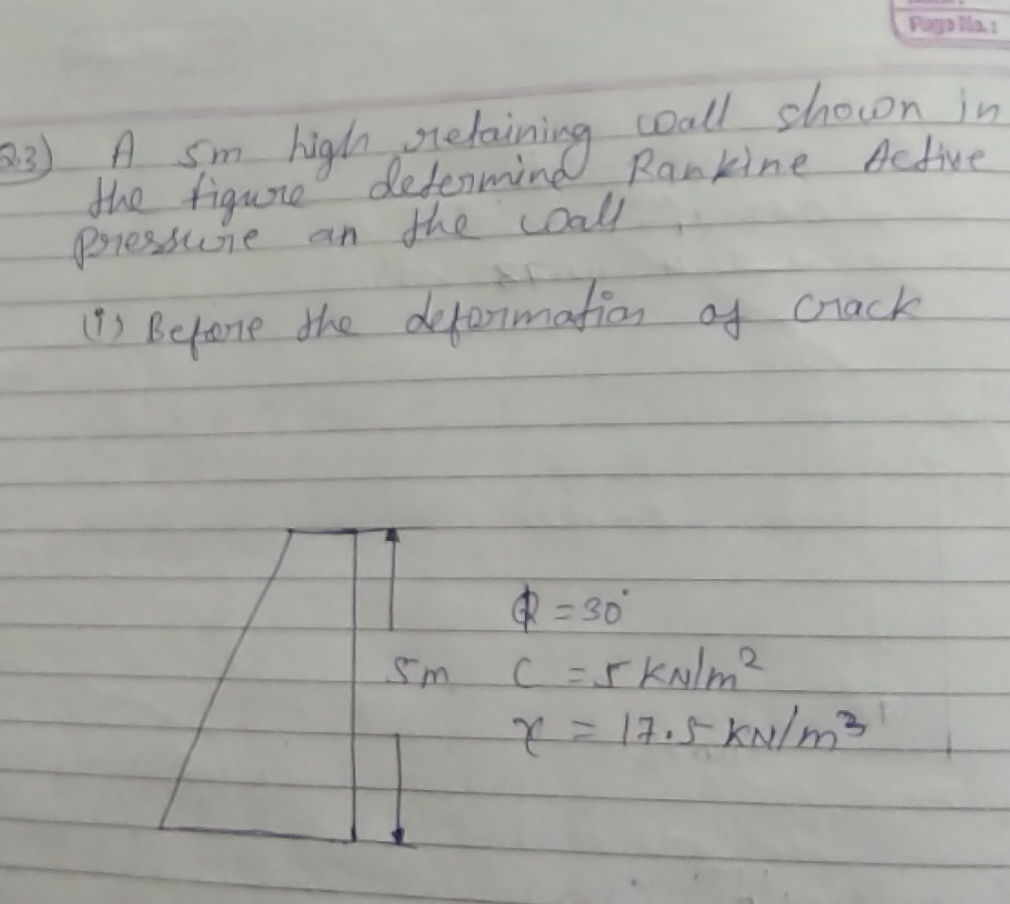 Page No.:
Q.3) A 5m high retaining wall shown in
the figure determine Rankine Active
Pressure an the wall
(i) Before the deformation of crack
Φ = 30°
5m C = 5 KN/m²
γ = 17.5 KN/m³